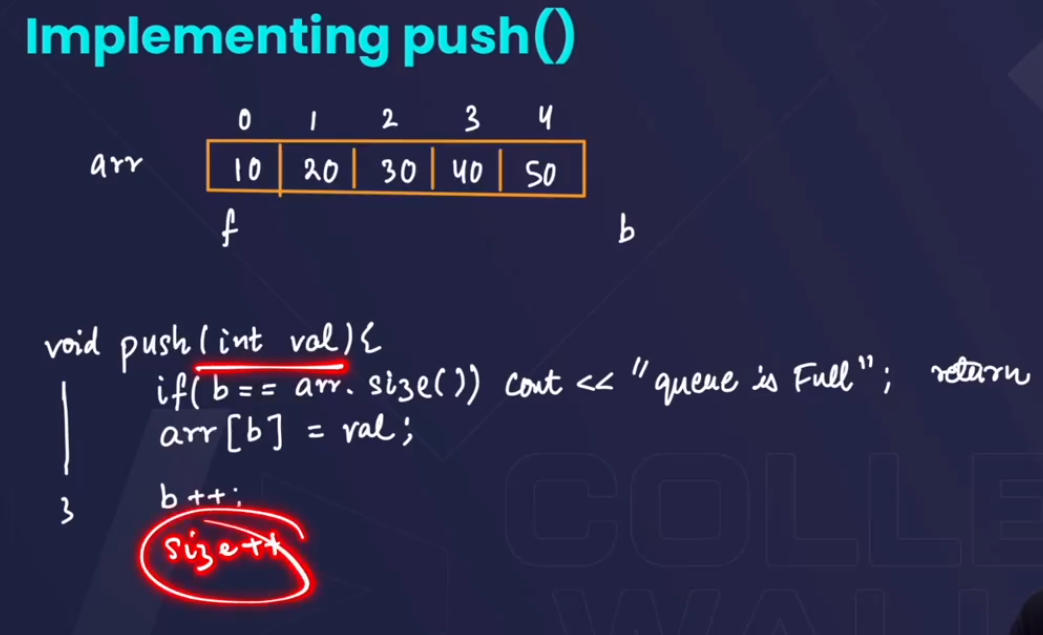 Implementing push()
0 1 2 3 4
arr 10 20 30 40 50
f b
void push(int val){
if(b == arr.size()) cout << "queue is Full"; return
arr[b] = val;
b++;
}
size++
COLLE
WALL